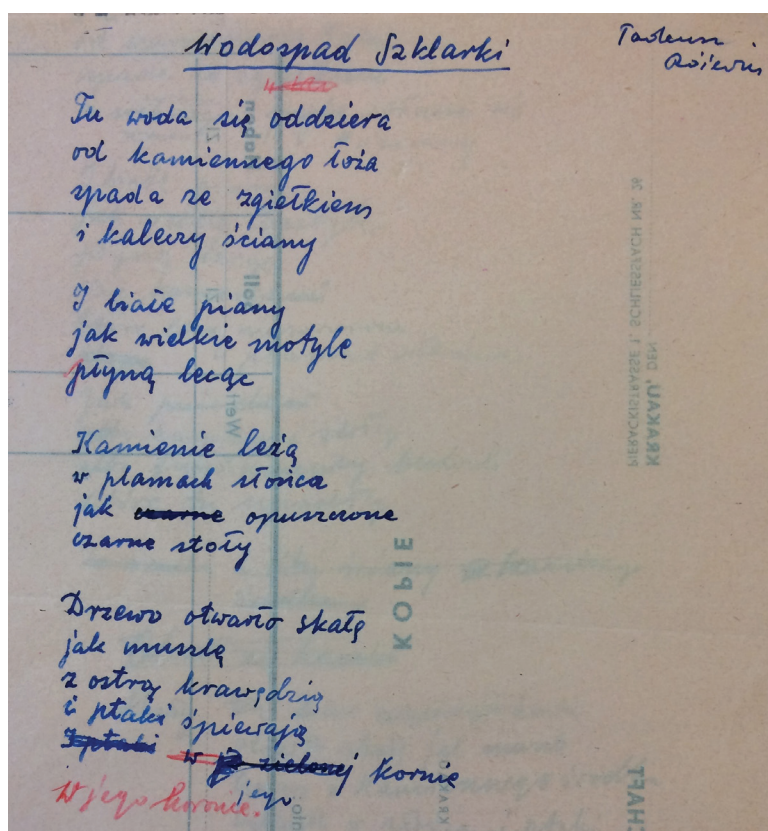 Wodospad Szklarki
Tadeusz
Różewicz
Tu woda się oddziera
od kamiennego łoża
spada ze zgiełkiem
i kaleczy ściany
I białe piany
jak wielkie motyle
płyną lecąc
Kamienie leżą
w plamach słońca
jak czarne opuszczone
czarne stoły
Drzewo otwarło skałę
jak muszlę
z ostrą krawędzią
i ptaki śpiewają
I ptaki w zielonej koronie
jego
W jego koronie.
Haben
Soll
Wert
KOPIE
PIERACKISTRASSE 1, SCHLIESSFACH NR. 26
KRAKAU, DEN
KRAKAU
CHAFT